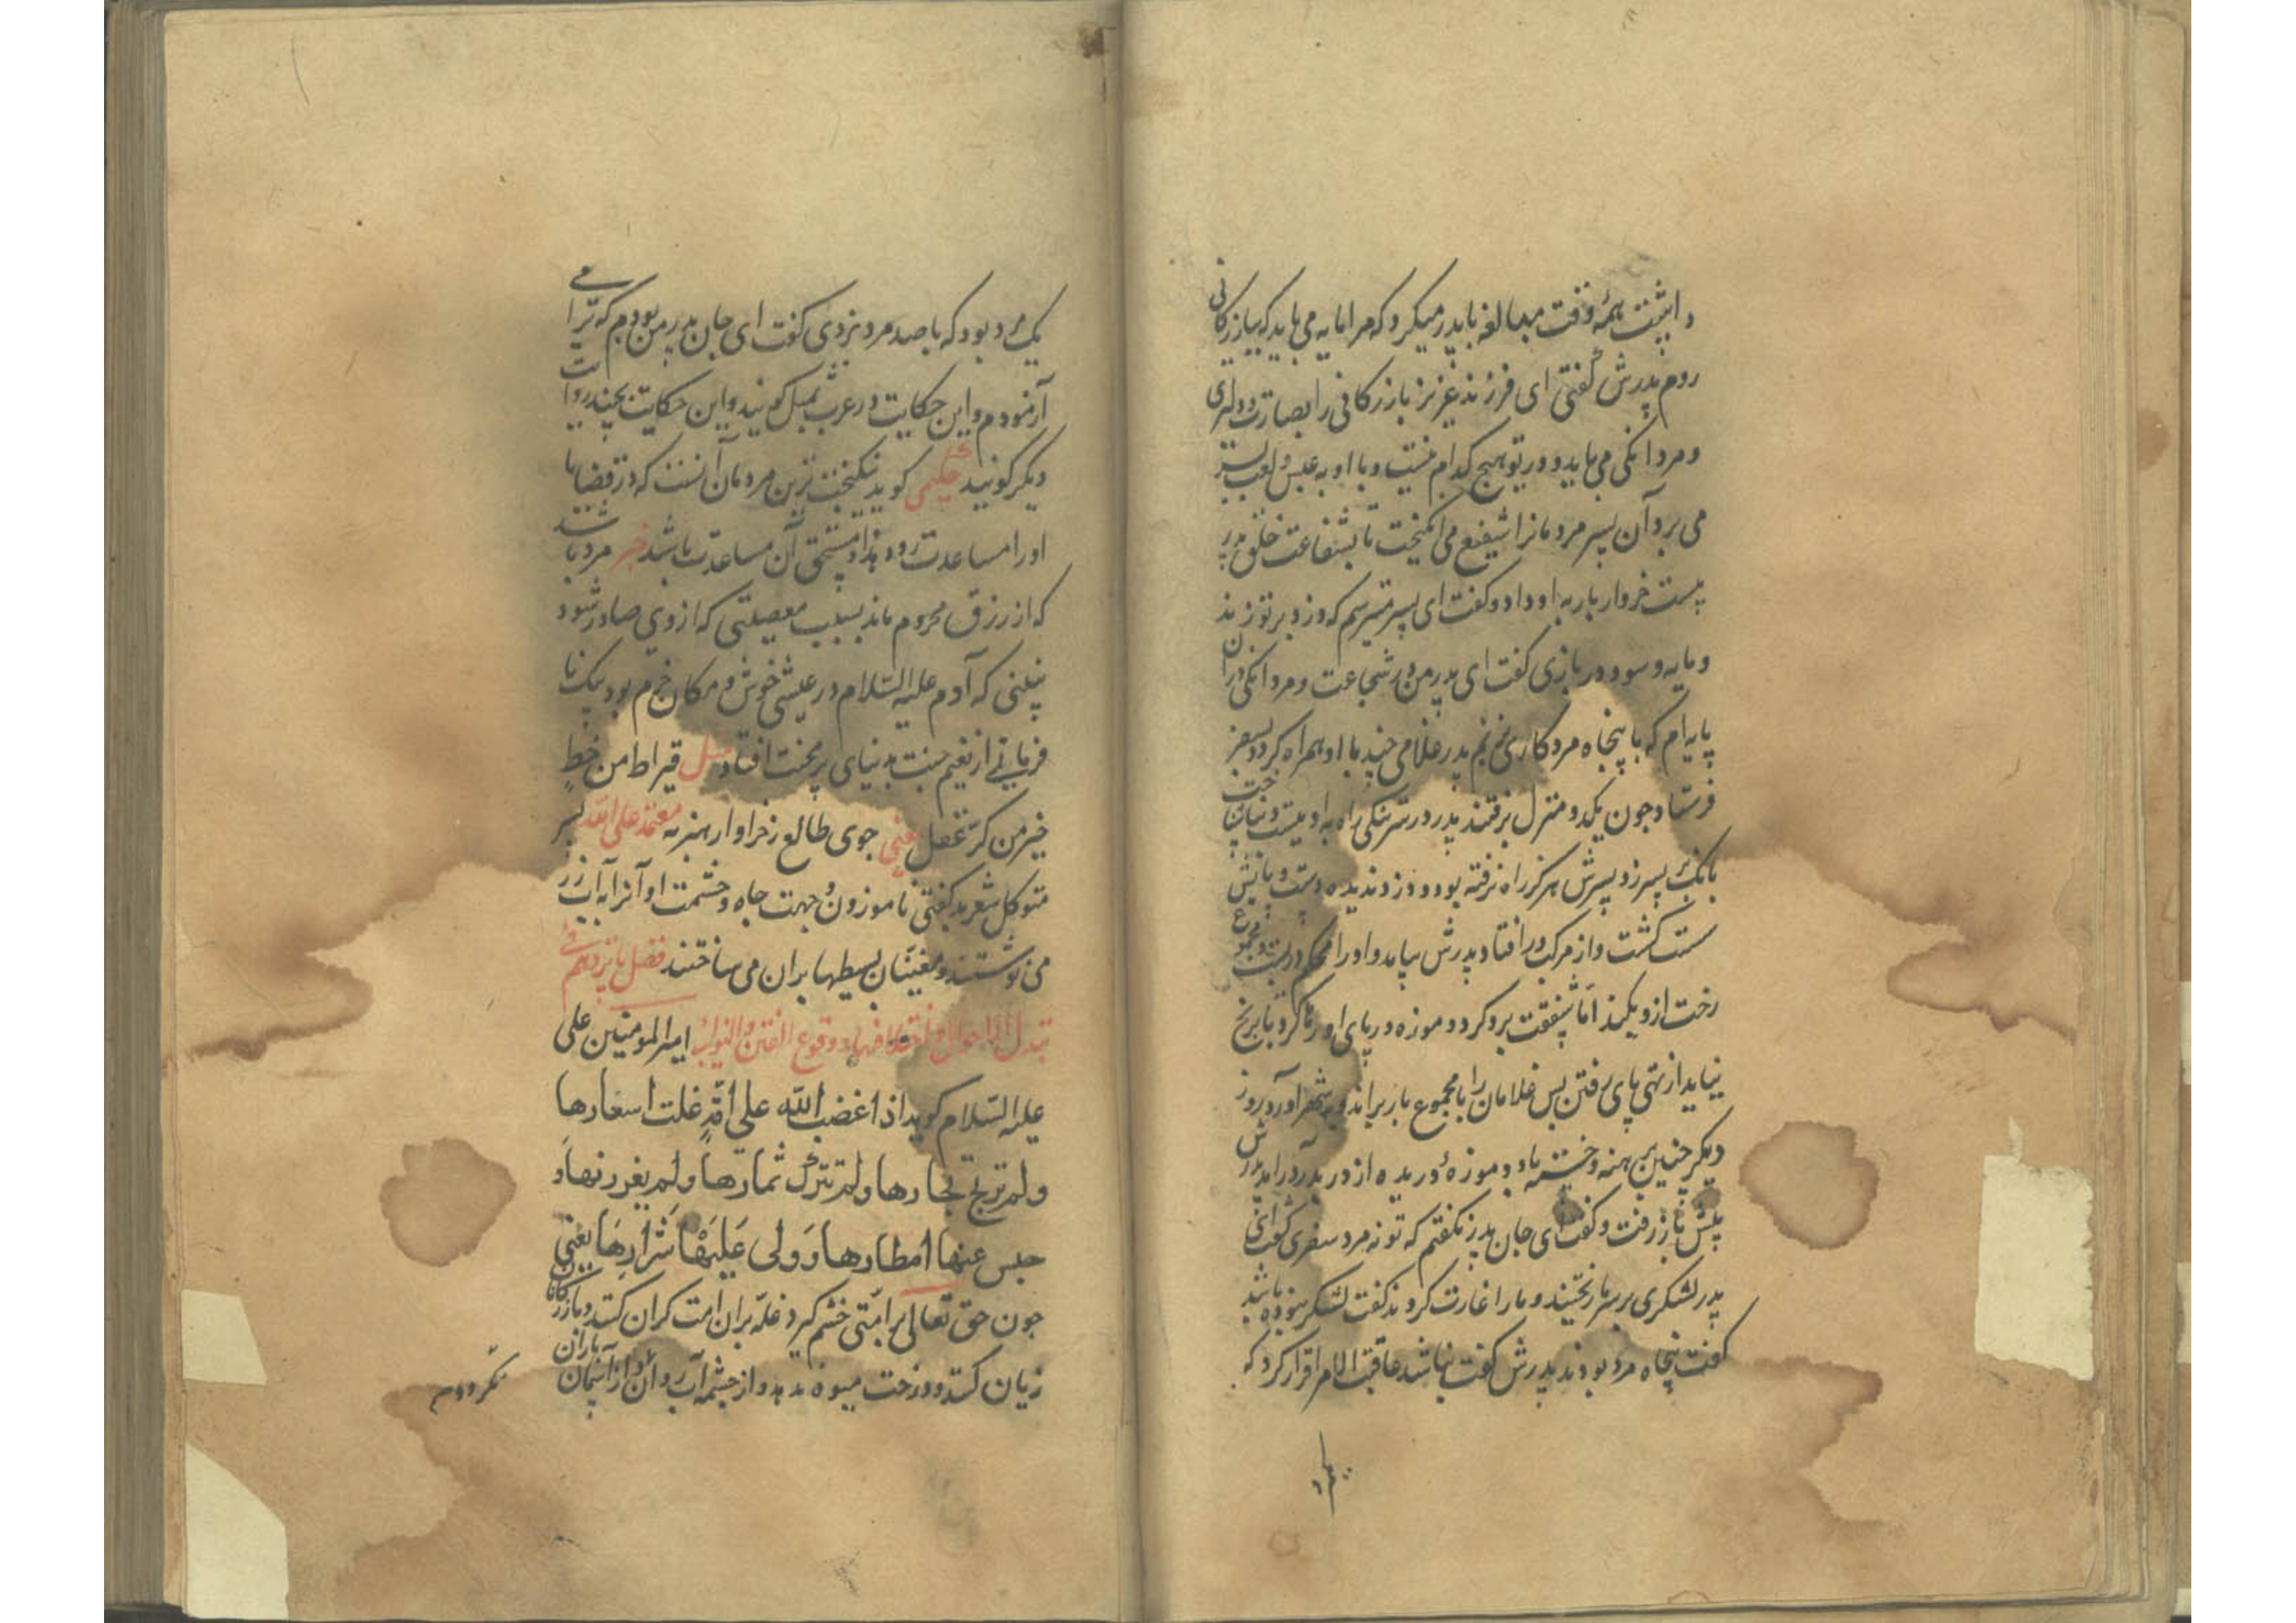 داشت همه وقت مبالغه با پدر میکرد که مرا مایه می باید که ببازرکانی
روم پدرش گفتی ای فرزند عزیز بازرکانی را بصارت و دلیری
و مردانکی می باید و در تو هیچ کدام نیست و با او به عبس و لعب بسر
می برد آن پسر مردمانرا شفیع می انکیخت تا بشفاعت خلق پدر
بیست خروار بار به او داد و کفت ای پسر میترسم که دزد بر تو زند
و مایه و سود در بازی کفت ای پدر من در شجاعت و مردانکی در آن
پایه ام که با پنجاه مرد کارزی نم پدر غلامی چند با او همراه کرد و بسفر
فرستاد جون یکدو منزل برفتند پدر در تنکی راه به او
بانک بر پسر زد پسرش هرکز راه نرفته بود و دزد ندیده دست و پایش
سست کشت و از مرکب در افتاد پدرش بیامد و او را محکم دربست و مجموع
رخت از و بکند اما شفقت برو کرد و موزه در پای او رها کرد تا برنج
نیاید از تهی پای رفتن پس غلامان را با مجموع بار براند و بشهر آورد روز
دیکر جنین برهنه و خسته باد و موزهٔ دریده از در پدر درامد پدرش
پیش باز رفت و کفت ای جان پدر نکفتم که تو نه مرد سفری کفت ای
پدر لشکری بر سر ما ریختند و ما را غارت کردند کفت لشکر نبوده باشد
کفت پنجاه مرد بودند پدرش کفت نباشد عاقبة الامر اقرار کرد که
یک مرد بود که با صد مرد بزدی کفت ای جان پدر من بودم که ترا می
آزمودم و این حکایت در عرب مثل کویند و این حکایت بچند روایت
دیکر کویند حکیمی کوید نیکبخت ترین مردمان آنست که در قضایا
او را مساعدت رود و او مستحق آن مساعدت باشد خبر مرد باشد
که از رزق محروم ماند بسبب معصیتی که از وی صادر شود
نبینی که آدم علیه السلام در عیشی خوش و مکان خرم بود بیک نا
فرمانی از نعیم جنت بدنیای پر محنت افتاد مثل قیراط من خط
خیر من کر عقل یعنی جوی طالع ز خرواری هنر به معتمد علی الله پسر
متوکل شعر بد کفتی ناموزون جهت جاه و حشمت او آنرا به آب زر
می نوشتند و مغنیان بسیطها بران می ساختند فصل پانزدهم فی
تبدل الاحوال و اختلافها و وقوع الفتن و النوایب امیر المومنین علی
علیه السلام کوید اذا غضب الله علی امة غلت اسعارها
و لم تربح تجارها و لم تترک ثمارها و لم یغزر نهها و
حبس عنها امطارها و ولی علیها شرارها یعنی
جون حق تعالی بر امتی خشم کیرد غله بران امت کران کند و بازرکانان
زیان کنند و درخت میوه ندهد و از چشمه آب روان و از آسمان باران